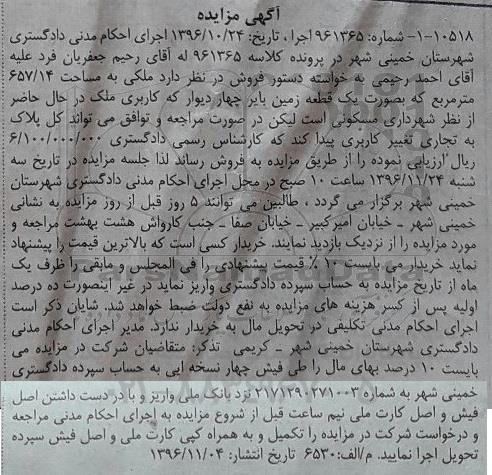 آگهی مزایده
۱۰۵۱۸-۱- شماره: ۹۶۱۳۶۵ اجرا، تاریخ: ۱۳۹۶/۱۰/۲۴ اجرای احکام مدنی دادگستری
شهرستان خمینی شهر در پرونده کلاسه ۹۶۱۳۶۵ له آقای رحیم جعفریان فرد علیه
آقای احمد رحیمی به خواسته دستور فروش در نظر دارد ملکی به مساحت ۶۵۷/۱۴
مترمربع که بصورت یک قطعه زمین بایر چهار دیوار که کاربری ملک در حال حاضر
از نظر شهرداری مسکونی است لیکن در صورت مراجعه و توافق می تواند کل پلاک
به تجاری تغییر کاربری پیدا کند که کارشناس رسمی دادگستری ۶/۱۰۰/۰۰۰/۰۰۰
ریال ارزیابی نموده را از طریق مزایده به فروش رساند لذا جلسه مزایده در تاریخ سه
شنبه ۱۳۹۶/۱۱/۲۴ ساعت ۱۰ صبح در محل اجرای احکام مدنی دادگستری شهرستان
خمینی شهر برگزار می گردد، طالبین می توانند ۵ روز قبل از روز مزایده به نشانی
خمینی شهر ـ خیابان امیرکبیر ـ خیابان صفا ـ جنب کارواش هشت بهشت مراجعه و
مورد مزایده را از نزدیک بازدید نمایند. خریدار کسی است که بالاترین قیمت را پیشنهاد
نماید خریدار می بایست ۱۰٪ قیمت پیشنهادی را فی المجلس و مابقی را ظرف یک
ماه از تاریخ مزایده به حساب سپرده دادگستری واریز نماید در غیر اینصورت ده درصد
اولیه پس از کسر هزینه های مزایده به نفع دولت ضبط خواهد شد. شایان ذکر است
اجرای احکام مدنی تکلیفی در تحویل مال به خریدار ندارد. مدیر اجرای احکام مدنی
دادگستری شهرستان خمینی شهر ـ کریمی تذکر: متقاضیان شرکت در مزایده می
بایست ۱۰ درصد بهای مال را طی فیش چهار نسخه ایی به حساب سپرده دادگستری
خمینی شهر به شماره ۲۱۷۱۲۹۰۲۷۱۰۰۳ نزد بانک ملی واریز و با در دست داشتن اصل
فیش و اصل کارت ملی نیم ساعت قبل از شروع مزایده به اجرای احکام مدنی مراجعه
و درخواست شرکت در مزایده را تکمیل و به همراه کپی کارت ملی و اصل فیش سپرده
تحویل اجرا نمایید. م/الف: ۶۵۳۰ تاریخ انتشار: ۱۳۹۶/۱۱/۰۴